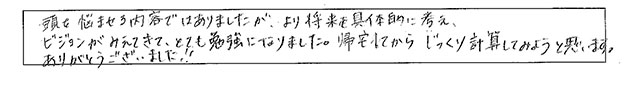 頭を悩ませる内容ではありましたが、より将来を具体的に考え、
ビジョンがみえてきて、とても勉強になりました。帰宅してから じっくり計算してみようと思います。
ありがとうございました!!